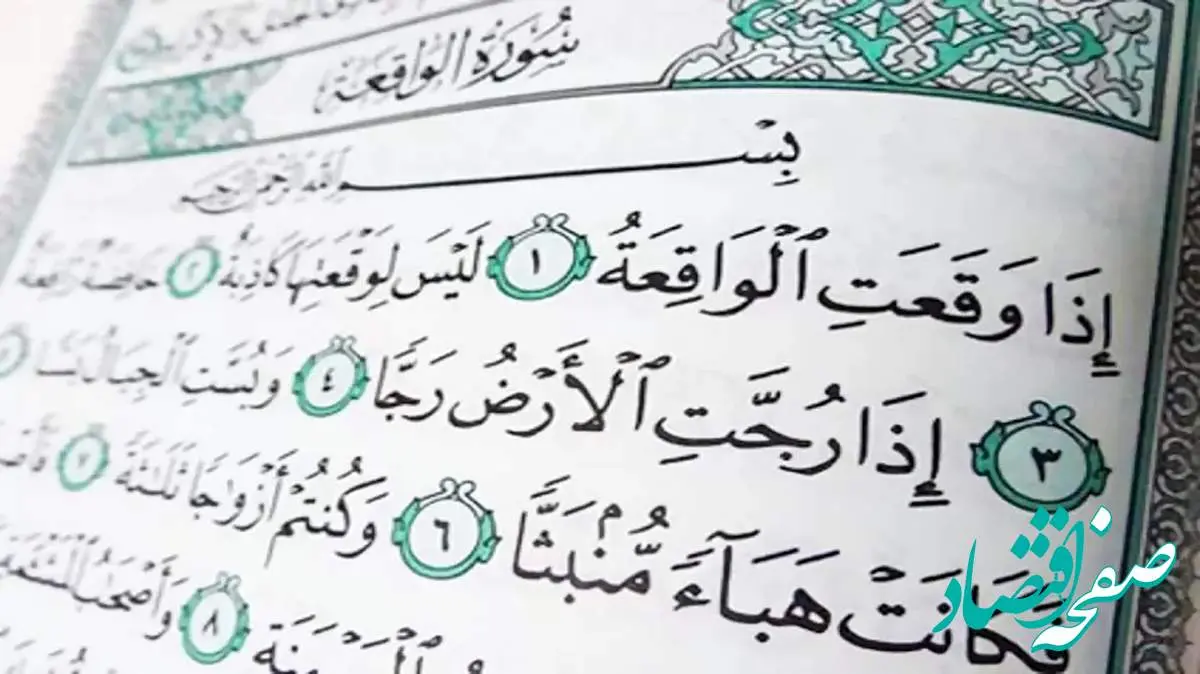 سُورَةُ الوَاقِعَةِ
بِسْمِ اللَّهِ الرَّحْمَٰنِ الرَّحِيمِ
إِذَا وَقَعَتِ ٱلْوَاقِعَةُ ١ لَيْسَ لِوَقْعَتِهَا كَاذِبَةٌ ٢ خَافِضَةٌ رَّافِعَةٌ
٣ إِذَا رُجَّتِ ٱلْأَرْضُ رَجًّا ٤ وَبُسَّتِ ٱلْجِبَالُ بَسًّا
فَكَانَتْ هَبَآءً مُّنۢبَثًّا ٦ وَكُنتُمْ أَزْوَٰجًا ثَلَٰثَةً ٧
٨ وَأَصْحَٰبُ ٱلْمَشْـَٔمَةِ
صفحه اقتصاد